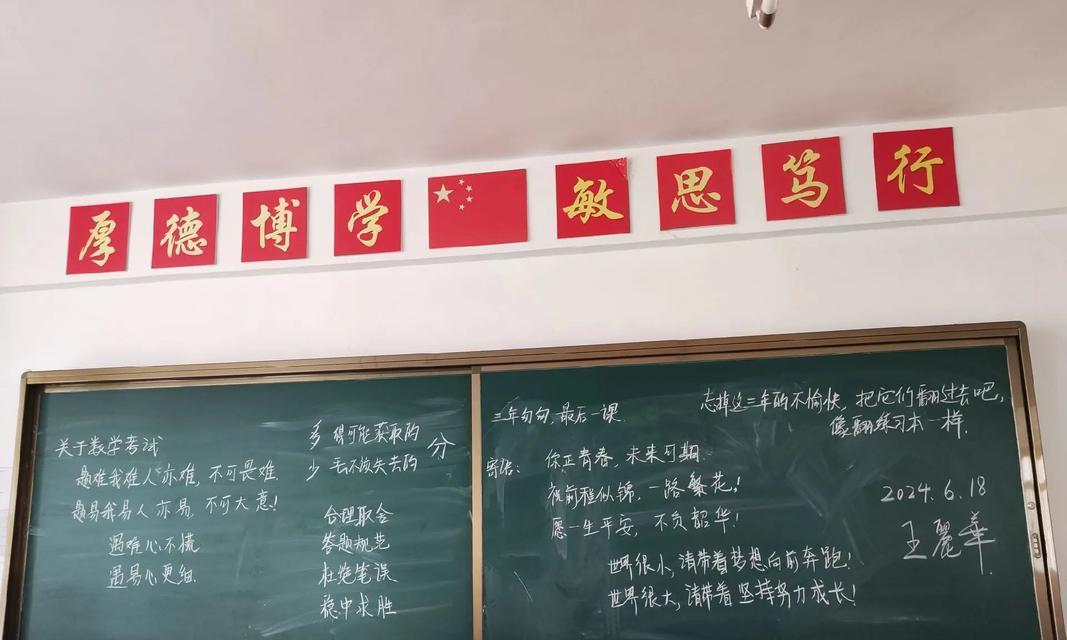 厚德博学 敏思笃行
关于数学考试
题难我难人亦难，不可畏难.
题易我易人亦易，不可大意！
遇难心不慌
遇易心更细.
多得可能获取的
少丢不该失去的
分
合理取舍
答题规范
杜绝笔误
稳中求胜
三年匆匆，最后一课
寄语：你正青春，未来可期.
祝前程似锦，一路繁花！
愿一生平安，不负韶华！
世界很小，请带着梦想向前奔跑！
世界很大，请带着坚持努力成长！
忘掉这三年的不愉快，把它们翻过去吧，
像翻练习本一样.
2024.6.18
王麗華